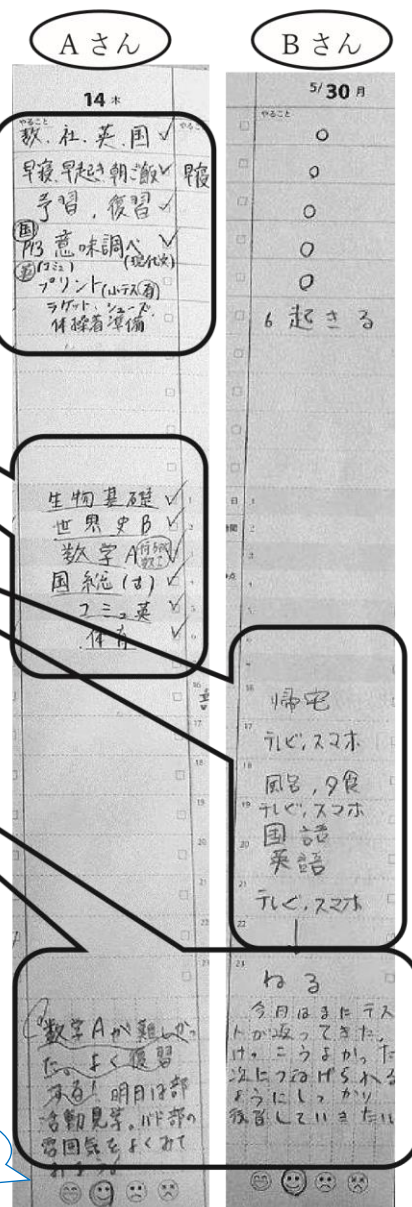 Aさん
14 木
やること
数、社、英、国 ✓
早寝、早起き、朝ご飯 ✓
予習、復習 ✓
国
P13 意味調べ ✓
(現代文)
英 (コミュ)
プリント(小テス(有)
ラケット、シューズ、
体操着準備
早寝
生物基礎 ✓
世界史B ✓
数学A ✓
国総(古) ✓
コミュ英 ✓
体育 ✓
数学Aが難しかっ
た。よく復習
する! 明日は部
活動見学。バド部の
雰囲気をよくみて
Bさん
5/30 月
やること
○
○
○
○
○
6 起きる
16 帰宅
17 テレビ、スマホ
18 風呂、夕食
19 テレビ、スマホ
20 国語
英語
21 テレビ、スマホ
22
23 ねる
今日はまたテス
トが返ってきた。
けっこうよかった
次につなげられる
ようにしっかり
復習していきたい